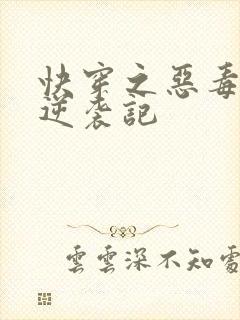 快穿之惡毒
逆袭記
雲雲深不知處